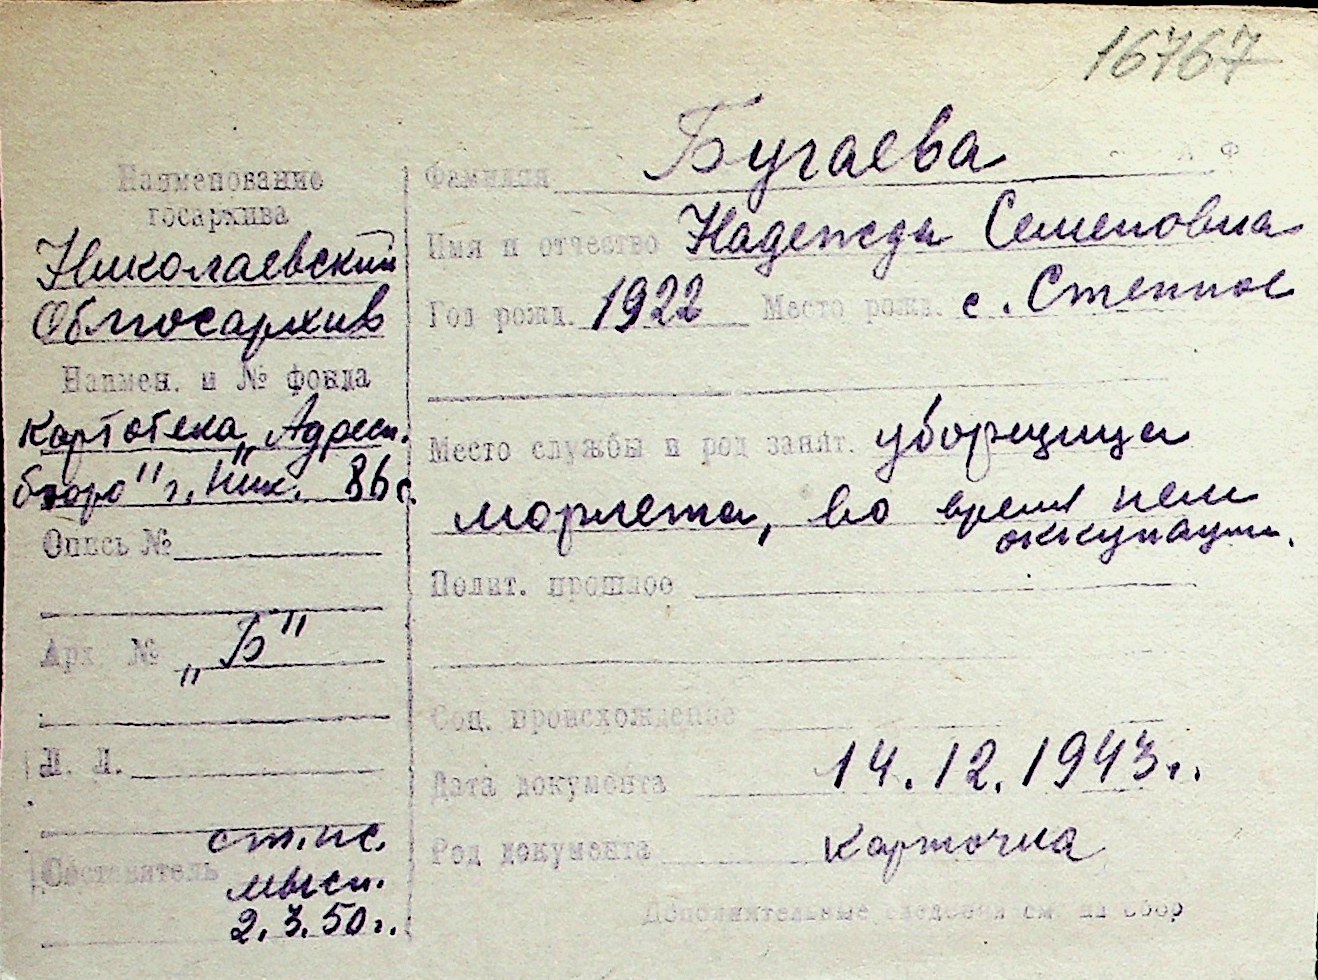 16767
Наименование
госархива
Николаевский
Облгосархив
Наимен. и № фонда
Картотека „Адресн.
бюро" г. Ник. 86 с.
Опись №
Арх. № „Б"
Л. Л.
ст. пс.
Составитель
2.3.50 г.
Фамилия Бугаева
Имя и отчество Надежда Семеновна
Год рожд. 1922 Место рожд. с. Степное
Место службы и род занят. уборщица
во время нем
оккупации.
Полит. прошлое
Соц. происхождение
Дата документа 14.12.1943 г.
Род документа карточка
Дополнительные сведения см. на обор